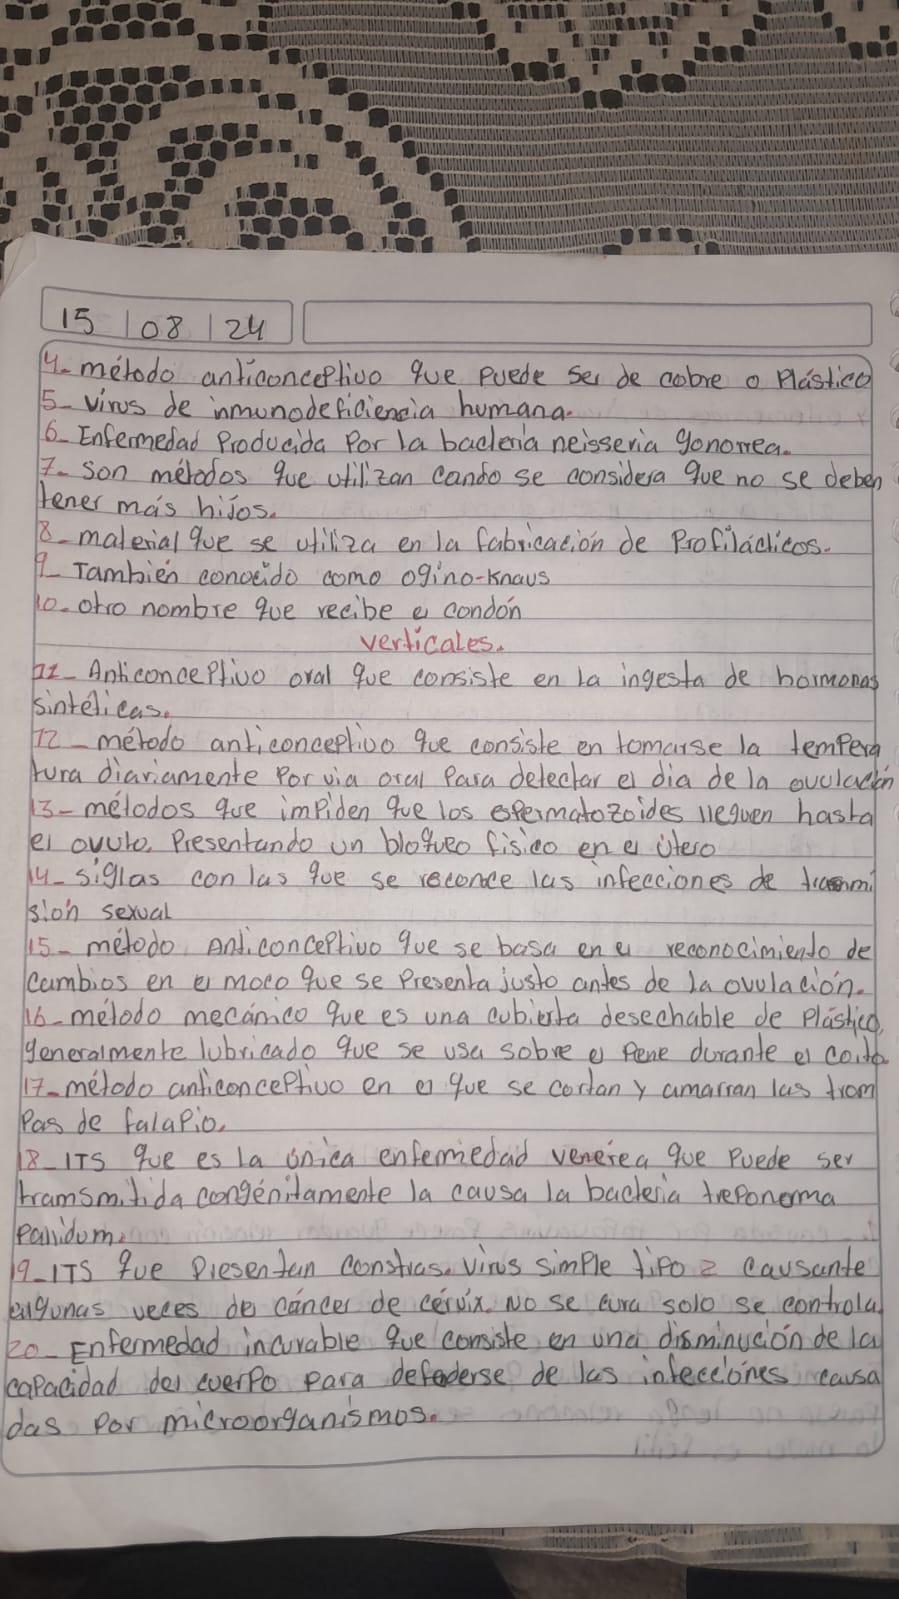 15 | 08 | 24
4- método anticonceptivo que puede ser de cobre o Plástico
5- virus de inmunodeficiencia humana.
6- Enfermedad Producida Por la bacteria neisseria gonorrea.
7- son métodos que utilizan cando se considera que no se deben
tener más hijos.
8- material que se utiliza en la fabricación de Profilácticos.
9- También conocido como Ogino-Knaus
10- otro nombre que recibe el condón
verticales.
11- Anticonceptivo oral que consiste en la ingesta de hormonas
sintéticas.
12- método anticonceptivo que consiste en tomarse la tempera
tura diariamente Por via oral Para detectar el dia de la ovulación
13- métodos que impiden que los espermatozoides lleguen hasta
el ovulo, Presentando un bloqueo fisico en el útero
14- siglas con las que se reconoce las infecciones de transmi
sión sexual
15- método Anticonceptivo que se basa en el reconocimiento de
cambios en el moco que se Presenta justo antes de la ovulación.
16- método mecánico que es una cubierta desechable de Plástico,
generalmente lubricado que se usa sobre el Pene durante el coito
17- método anticonceptivo en el que se cortan y amarran las trom
pas de falapio.
18- ITS que es la única enfermedad venérea que Puede ser
tramsmitida congénitamente la causa la bacteria treponerma
pallidum.
19- ITS que Presentan constras. virus simple tipo 2 causante
algunas veces de cáncer de cérvix. No se cura solo se controla.
20- Enfermedad incurable que consiste en una disminución de la
capacidad del cuerpo para defederse de las infecciones causa
das por microorganismos.